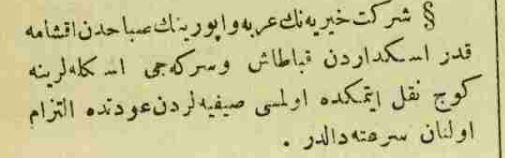 § شركت خيريه‌نك عربه واپورينك صباحدن اقشامه
قدر اسكداردن قباطاش وسركه‌جى اسكله‌لرينه
كوچ نقل ايتمكده اولمسى صيفيه‌لردن عودتده التزام
اولنان سرعته دالدر .